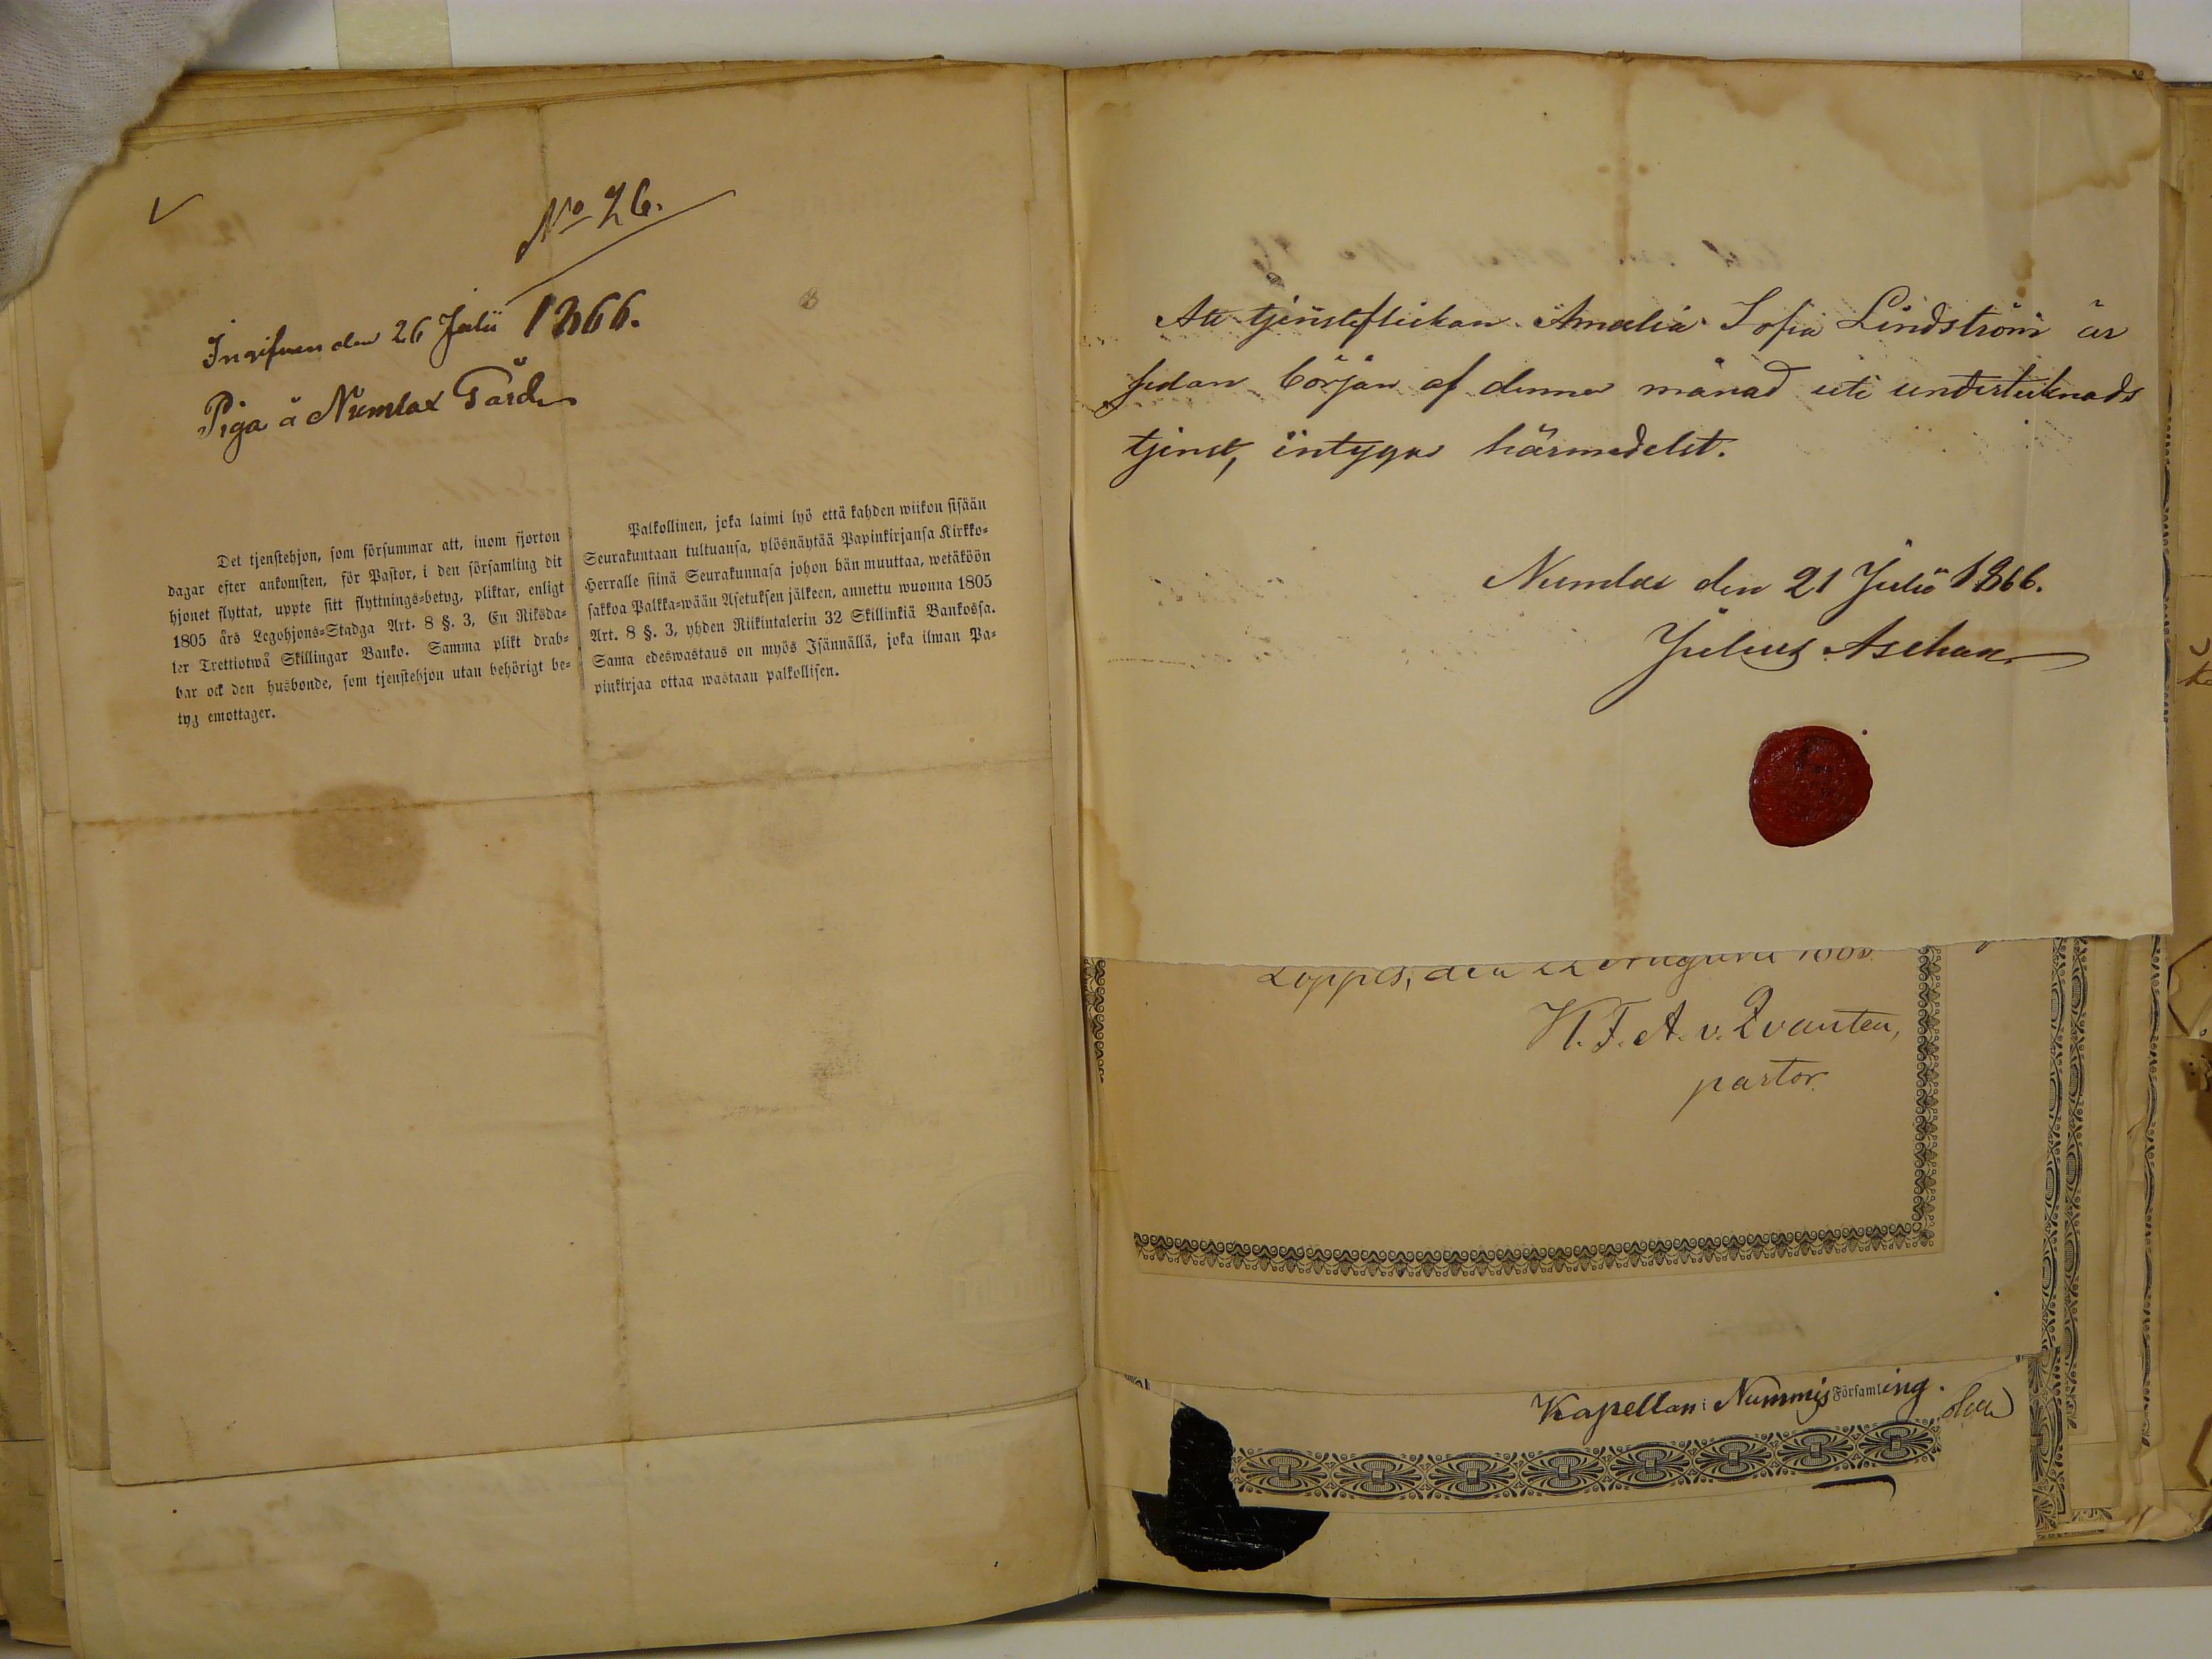 No 26.
Ingifven den 26 Julii 1866.
Piga å Numlax Gård
Det tjenstehjon, som försummar att, inom fjorton
dagar efter ankomsten, för Pastor, i den församling dit
hjonet flyttat, uppte sitt flyttnings=betyg, pliktar, enligt
1805 års Legohjons=Stadga Art. 8 §. 3, En Riksda=
ler Trettiotwå Skillingar Banko. Samma plikt drab=
bar ock den husbonde, som tjenstehjon utan behörigt be=
tyg emottager.
Palkollinen, joka laimi lyö että kahden wiikon sisään
Seurakuntaan tultuansa, ylösnäytää Papinkirjansa Kirkko=
Herralle siinä Seurakunnasa johon hän muuttaa, wetäköön
sakkoa Palkka=wään Asetuksen jälkeen, annettu wuonna 1805
Art. 8 §. 3, yhden Riikintalerin 32 Skillinkiä Bankossa.
Sama edeswastaus on myös Isännällä, joka ilman Pa=
pinkirjaa ottaa wastaan palkollisen.
Att tjensteflickan Amalia Sofia Lindström är
sedan början af denna månad uti undertecknads
tjenst, intygas härmedelst.
Numlax den 21 Julii 1866.
Julius Aschan
Loppis, den 22 Augusti
H. F. A. v. Qvanten,
pastor.
Kapellan i Nummis Församling.